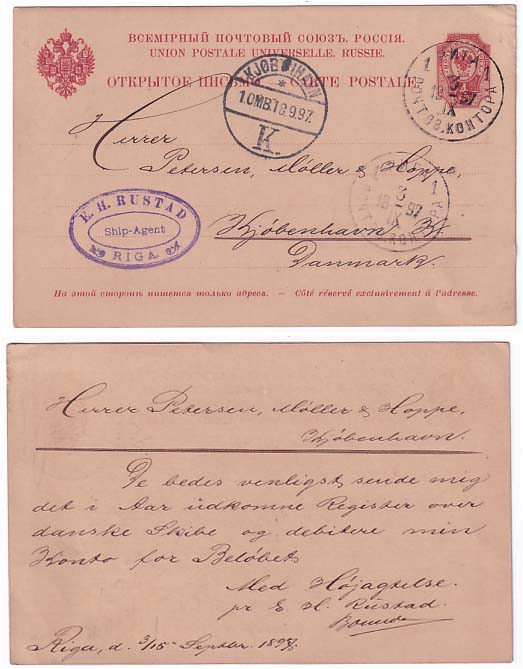 ВСЕМІРНЫЙ ПОЧТОВЫЙ СОЮЗЪ. РОССІЯ.
UNION POSTALE UNIVERSELLE. RUSSIE.
ОТКРЫТОЕ ПИСЬМО. CARTE POSTALE.
KJØBENHAVN
1.OMB. 18.9.97.
K.
РИГА
1 1
3
IX
97
ПОЧТОВ. КОНТОРА
Herrer
Petersen, Möller & Hoppe,
Kjöbenhavn K.
Danmark.
E. H. RUSTAD
Ship-Agent
RIGA.
1
3
97
IX
КОНТОРА
На этой сторонѣ пишется только адресъ. — Côté réservé exclusivement à l'adresse.
Herrer Petersen, Möller & Hoppe,
Kjöbenhavn.
De bedes venligst sende mig
det i Aar udkomne Register over
danske Skibe og debitere min
Konto for Belöbet.
Med Höjagtelse.
pr E. H. Rustad.
Riga, d. 3/15 Septbr. 1897.